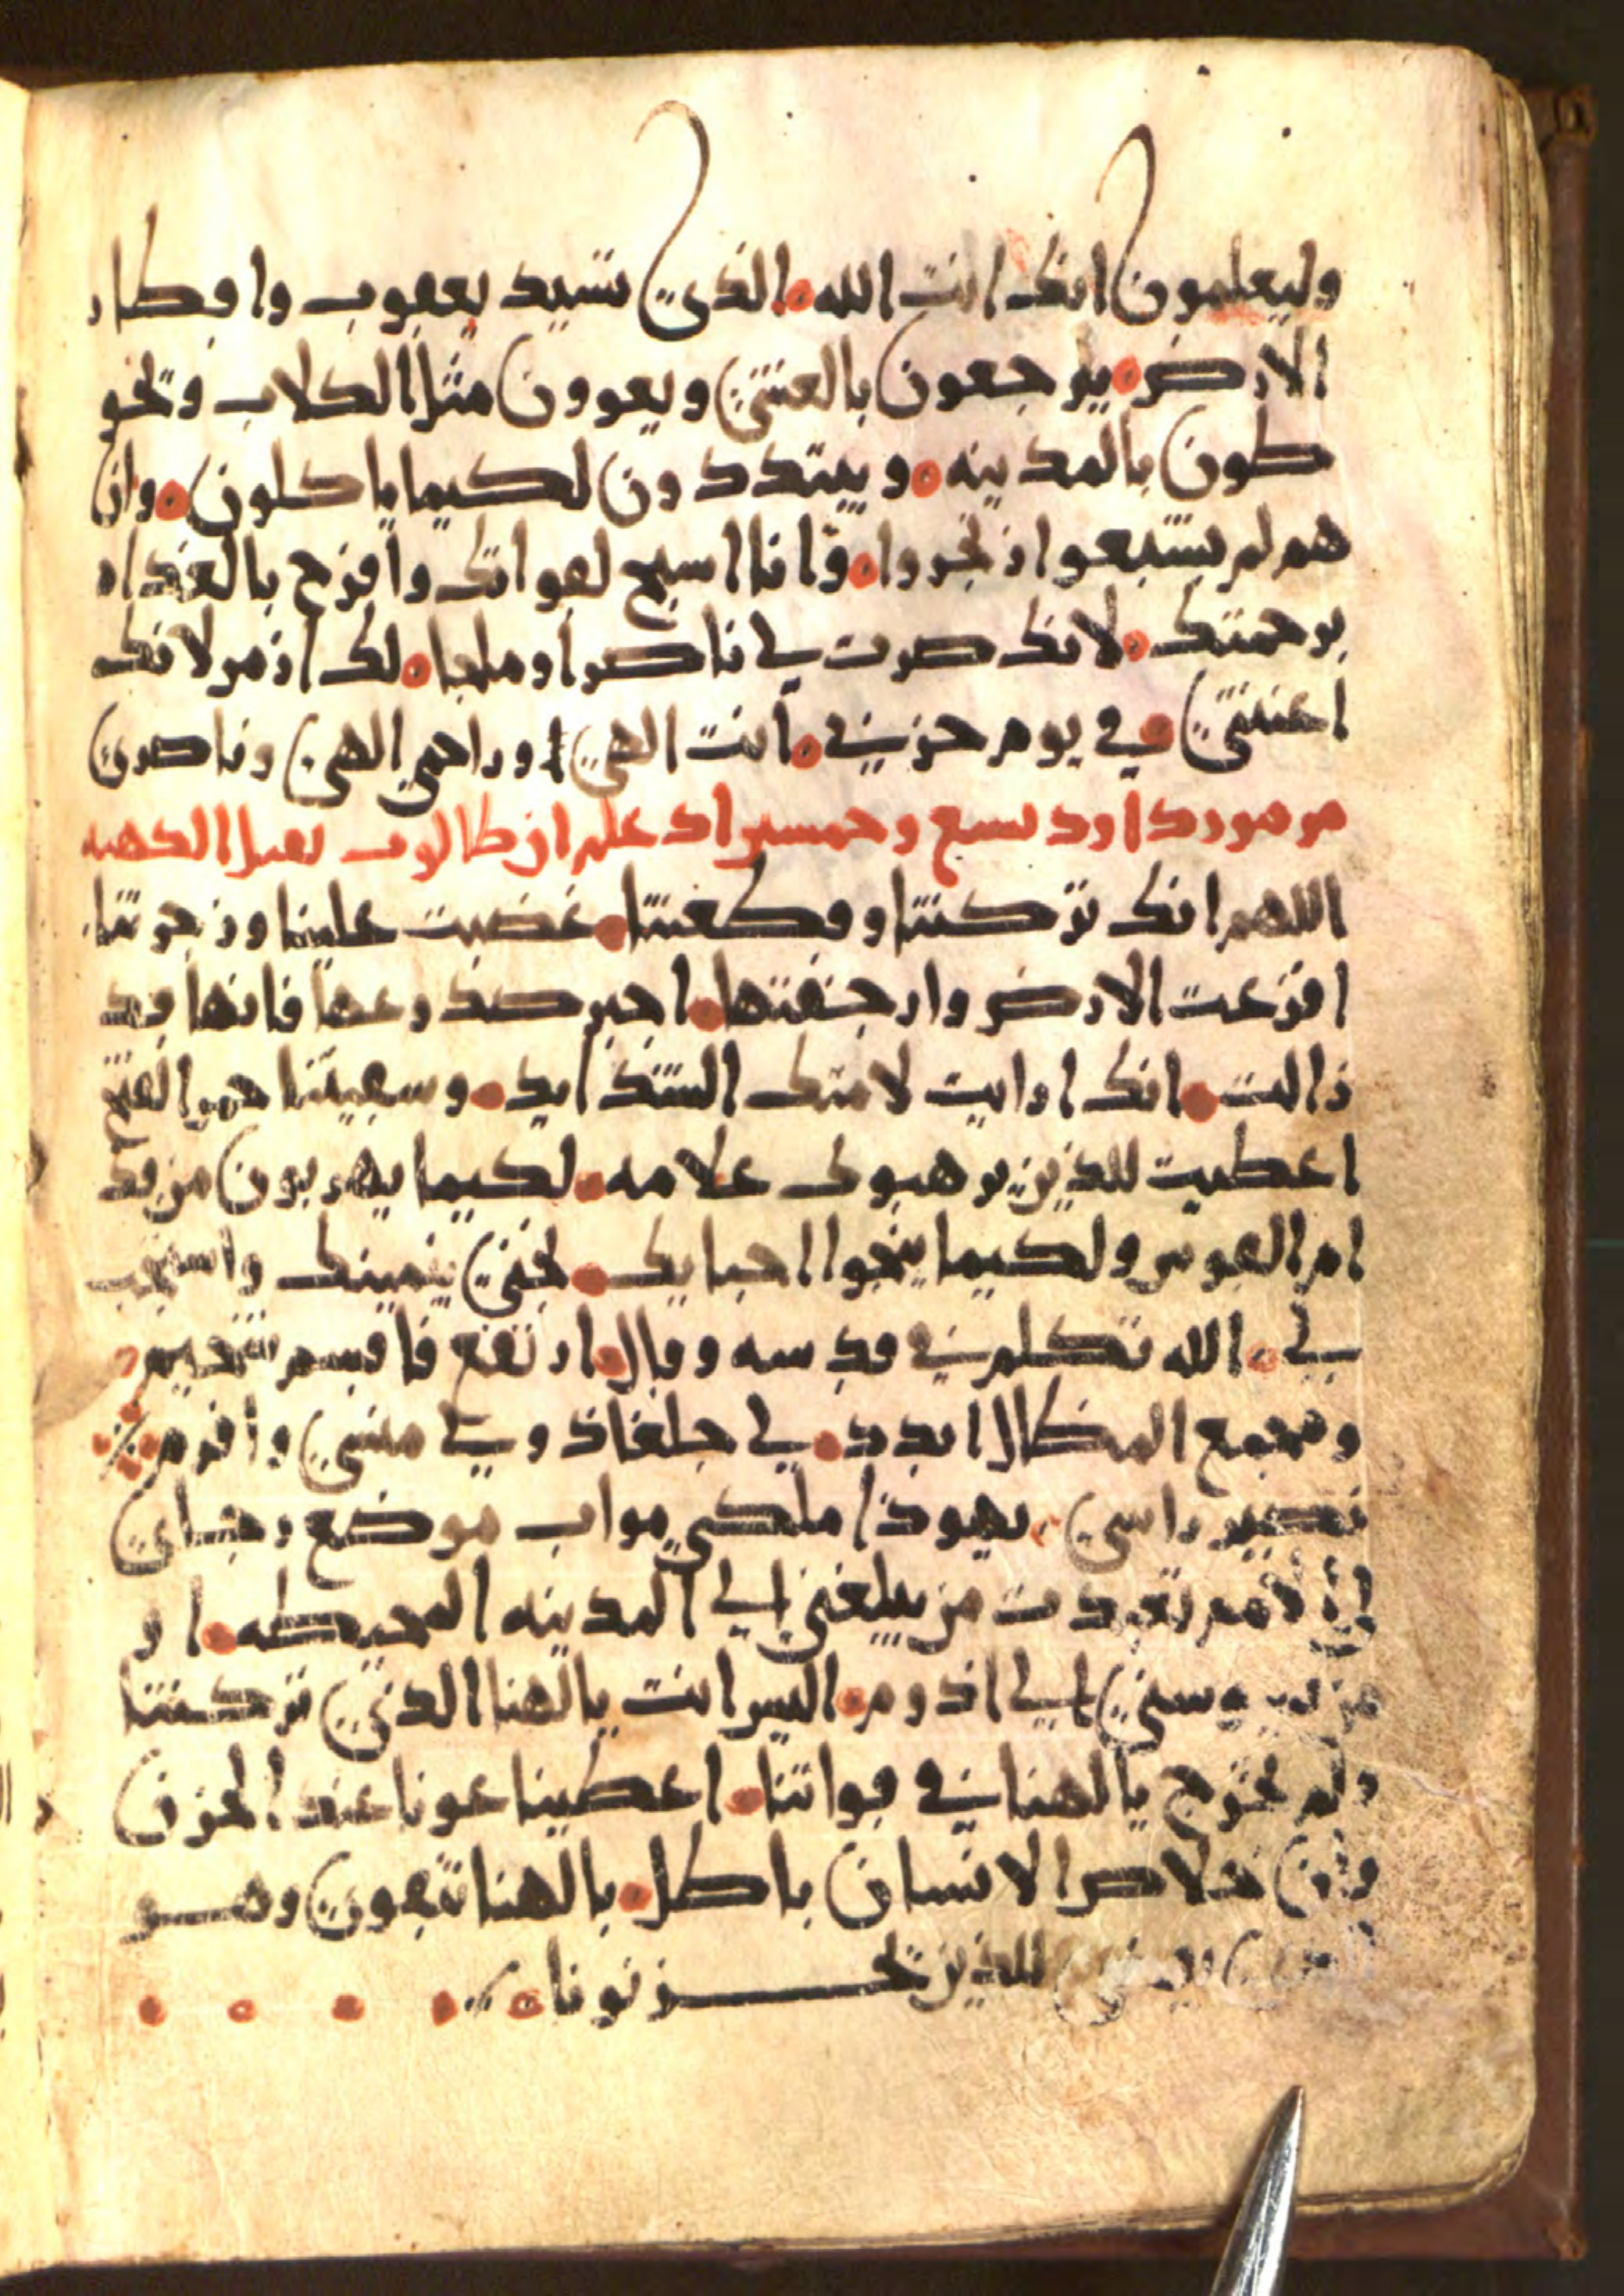 وليعلمون انك انت الله الذي تسيد يعقوب واقطار
الارض يرجعون بالعشي ويعوون مثل الكلاب وتحو
طون بالمدينه ويبتددون لكيما ياكلون وان
هم لم يشبعوا زنجروا وانا اسبح لقواتك وافرح بالغداه
برحمتك لانك صرت لي ناصرا وملجا لك ازمر لانك
اعنتني في يوم حزني انت الهي وراحمي الهي وناصري
مزمور داود تسع وخمسين اد علم ان طالوت
اللهم انك تركتنا وقطعتنا غضبت علينا وزجرتنا
افزعت الارض وارجفتها اجبر صدوعها فانها قد
زالت انك اوايت لامتك الشدايد وسقيتنا
اعطيت للذين يرهبوك علامه لكيما يهربون من قد
ام القوس ولكيما ينجوا احبايك نجني بيمينك واستجب
لي الله تكلم في قدسه وقال ارتفع فاقسم شخيم
ومجمع المظال ابدد لي جلعاذ ولي منسي وافرم
نصير راسي يهوذا ملكي مواب موضع رجاي
لي الامم تعبدت من يبلغني الي المدينه المحيطه او
من يوسني الي اذوم اليس انت يالهنا الذي تركتنا
ولم تخرج يالهنا في قواتنا اعطينا عونا عند الحزن
خلاص الانسان باطل بالهنا نقوي وهو
للذين يحزنونا